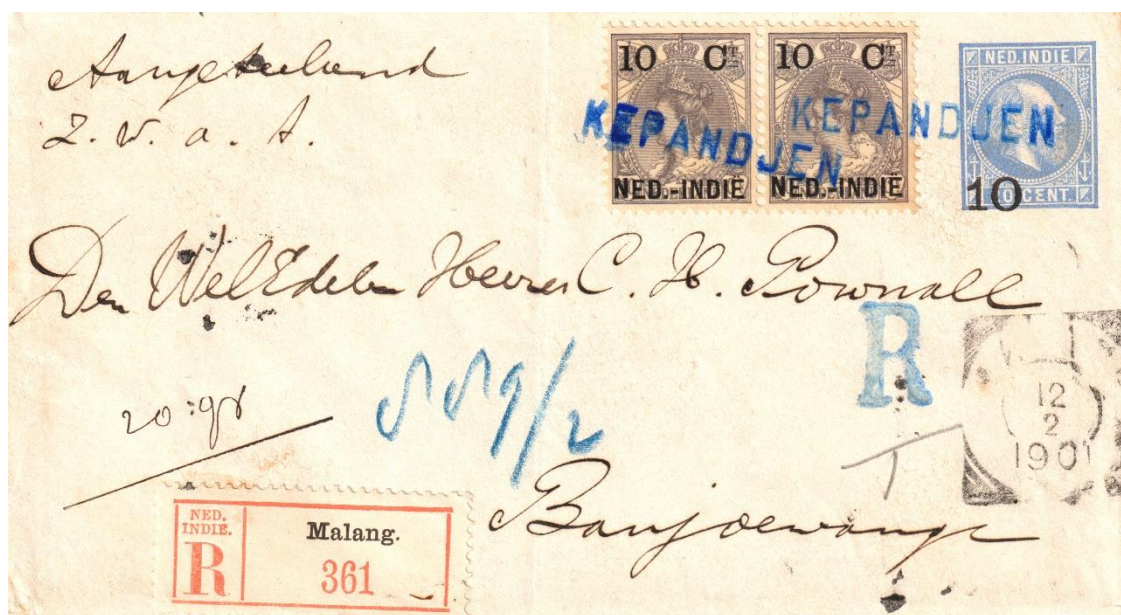 Aangeteekend
Z. W. a. A.
10 CT
NED.-INDIË
10 CT
NED.-INDIË
NED. INDIE
10
10 CENT.
KEPANDJEN
KEPANDJEN
Den WelEdelen Heer C. H. Pownall
R
12
2
1901
20 gr
T
Banjoewangi
NED.
INDIË.
R
Malang.
361